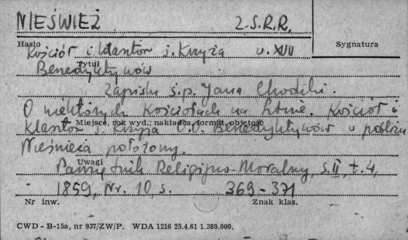 NIEŚWIEŻ Z.S.R.R.
Hasło Sygnatura
Kościół i klasztor ś. Krzyża w. XVII
Tytuł
Benedyktynów
Zapiski ś.p. Jana Chodźki.
O niektórych kościołach na Litwie. Kościół i
Miejsce, rok wyd.; nakładca, format, objętość
klasztor ś. Krzyża O.O. Benedyktynów w pobliżu
Nieświeża położony.
Uwagi
Pamiętnik Religijno-Moralny, s. II, t. 4,
1859, Nr. 10, s. 369-371
Nr inw. Znak klas.
CWD - B-15a, nr 937/ZW/P. WDA 1216 23.4.61 1.380.000.